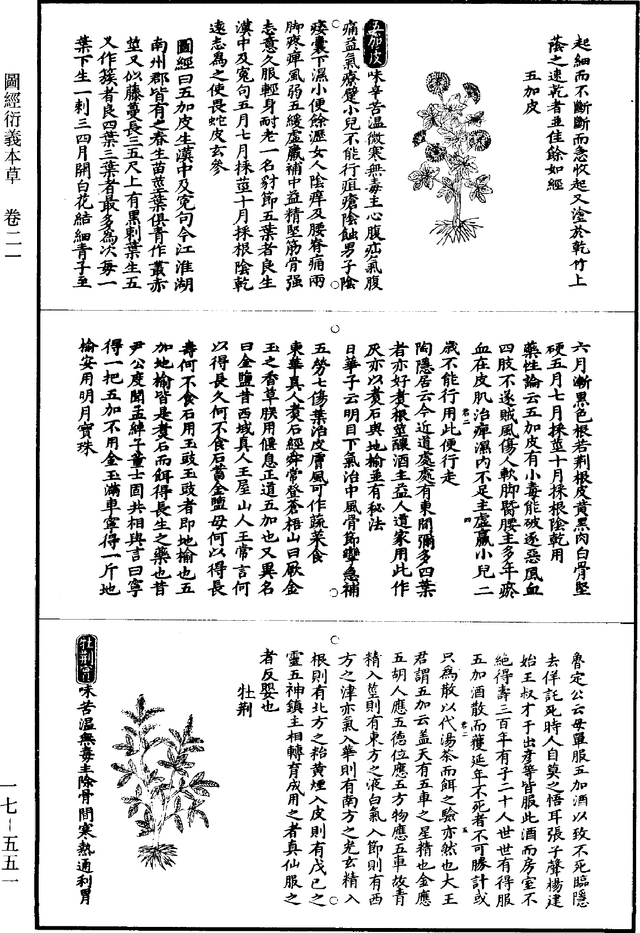 圖經衍義本草　卷二一
起細而不斷斷而急收起又塗於乾竹上
蔭之速乾者並佳餘如經
五加皮
五加皮味辛苦溫微寒無毒主心腹疝氣腹
痛益氣療躄小兒不能行疽瘡陰蝕男子陰
痿囊下濕小便餘瀝女人陰痒及腰脊痛兩
脚疼痺風弱五緩虛羸補中益精堅筋骨强
志意久服輕身耐老一名豺節五葉者良生
漢中及冤句五月七月採莖十月採根陰乾
遠志為之使畏蛇皮玄參
圖經曰五加皮生漢中及冤句今江淮湖
南州郡皆有之春生苗莖葉俱青作叢赤
莖又似藤蔓長三五尺上有黑刺葉生五
叉作簇者良四葉三葉者最多為次每一
葉下生一刺三四月開白花結細青子至
六月漸黑色根若荆根皮黄黑肉白骨堅
硬五月七月採莖十月採根陰乾用
藥性論云五加皮有小毒能破逐惡風血
四肢不遂賊風傷人軟脚䏶腰主多年瘀
血在皮肌治痺濕內不足主虛羸小兒三
歲不能行用此便行走
陶隱居云今近道處處有東間彌多四葉
者亦好煮根莖釀酒主益人道家用此作
灰亦以煮石與地榆並有秘法
日華子云明目下氣治中風骨節攣急補
五勞七傷葉治皮膚風可作蔬菜食
東華真人煮石經舜常登蒼梧山曰厥金
玉之香草朕用偃息正道五加也又異名
曰金鹽昔西域真人王屋山人王常言何
以得長久何不食石蓄金鹽母何以得長
壽何不食石用玉豉玉豉者即地榆也五
加地榆皆是煮石而餌得長生之藥也昔
尹公度聞孟綽子董士固共相與言曰寧
得一把五加不用金玉滿車寧得一斤地
榆安用明月寶珠
魯定公云母單服五加酒以致不死臨隱
去佯託死時人自莫之悟耳張子聲楊建
始王叔才于世彥等皆服此酒而房室不
絶得壽三百年有子二十人世世有得服
五加酒散而獲延年不死者不可勝計或
只為散以代湯茶而餌之驗亦然也大王
君謂五加云盖天有五車之星精也金應
五胡人應五德位應五方物應五車故青
精入莖則有東方之液白氣入節則有西
方之津赤氣入華則有南方之光玄精入
根則有北方之粘黄煙入皮則有戊己之
靈五神鎮主相轉育成用之者真仙服之
者反嬰也
牡荆
牡荆實味苦溫無毒主除骨間寒熱通利胃
一七-五五一